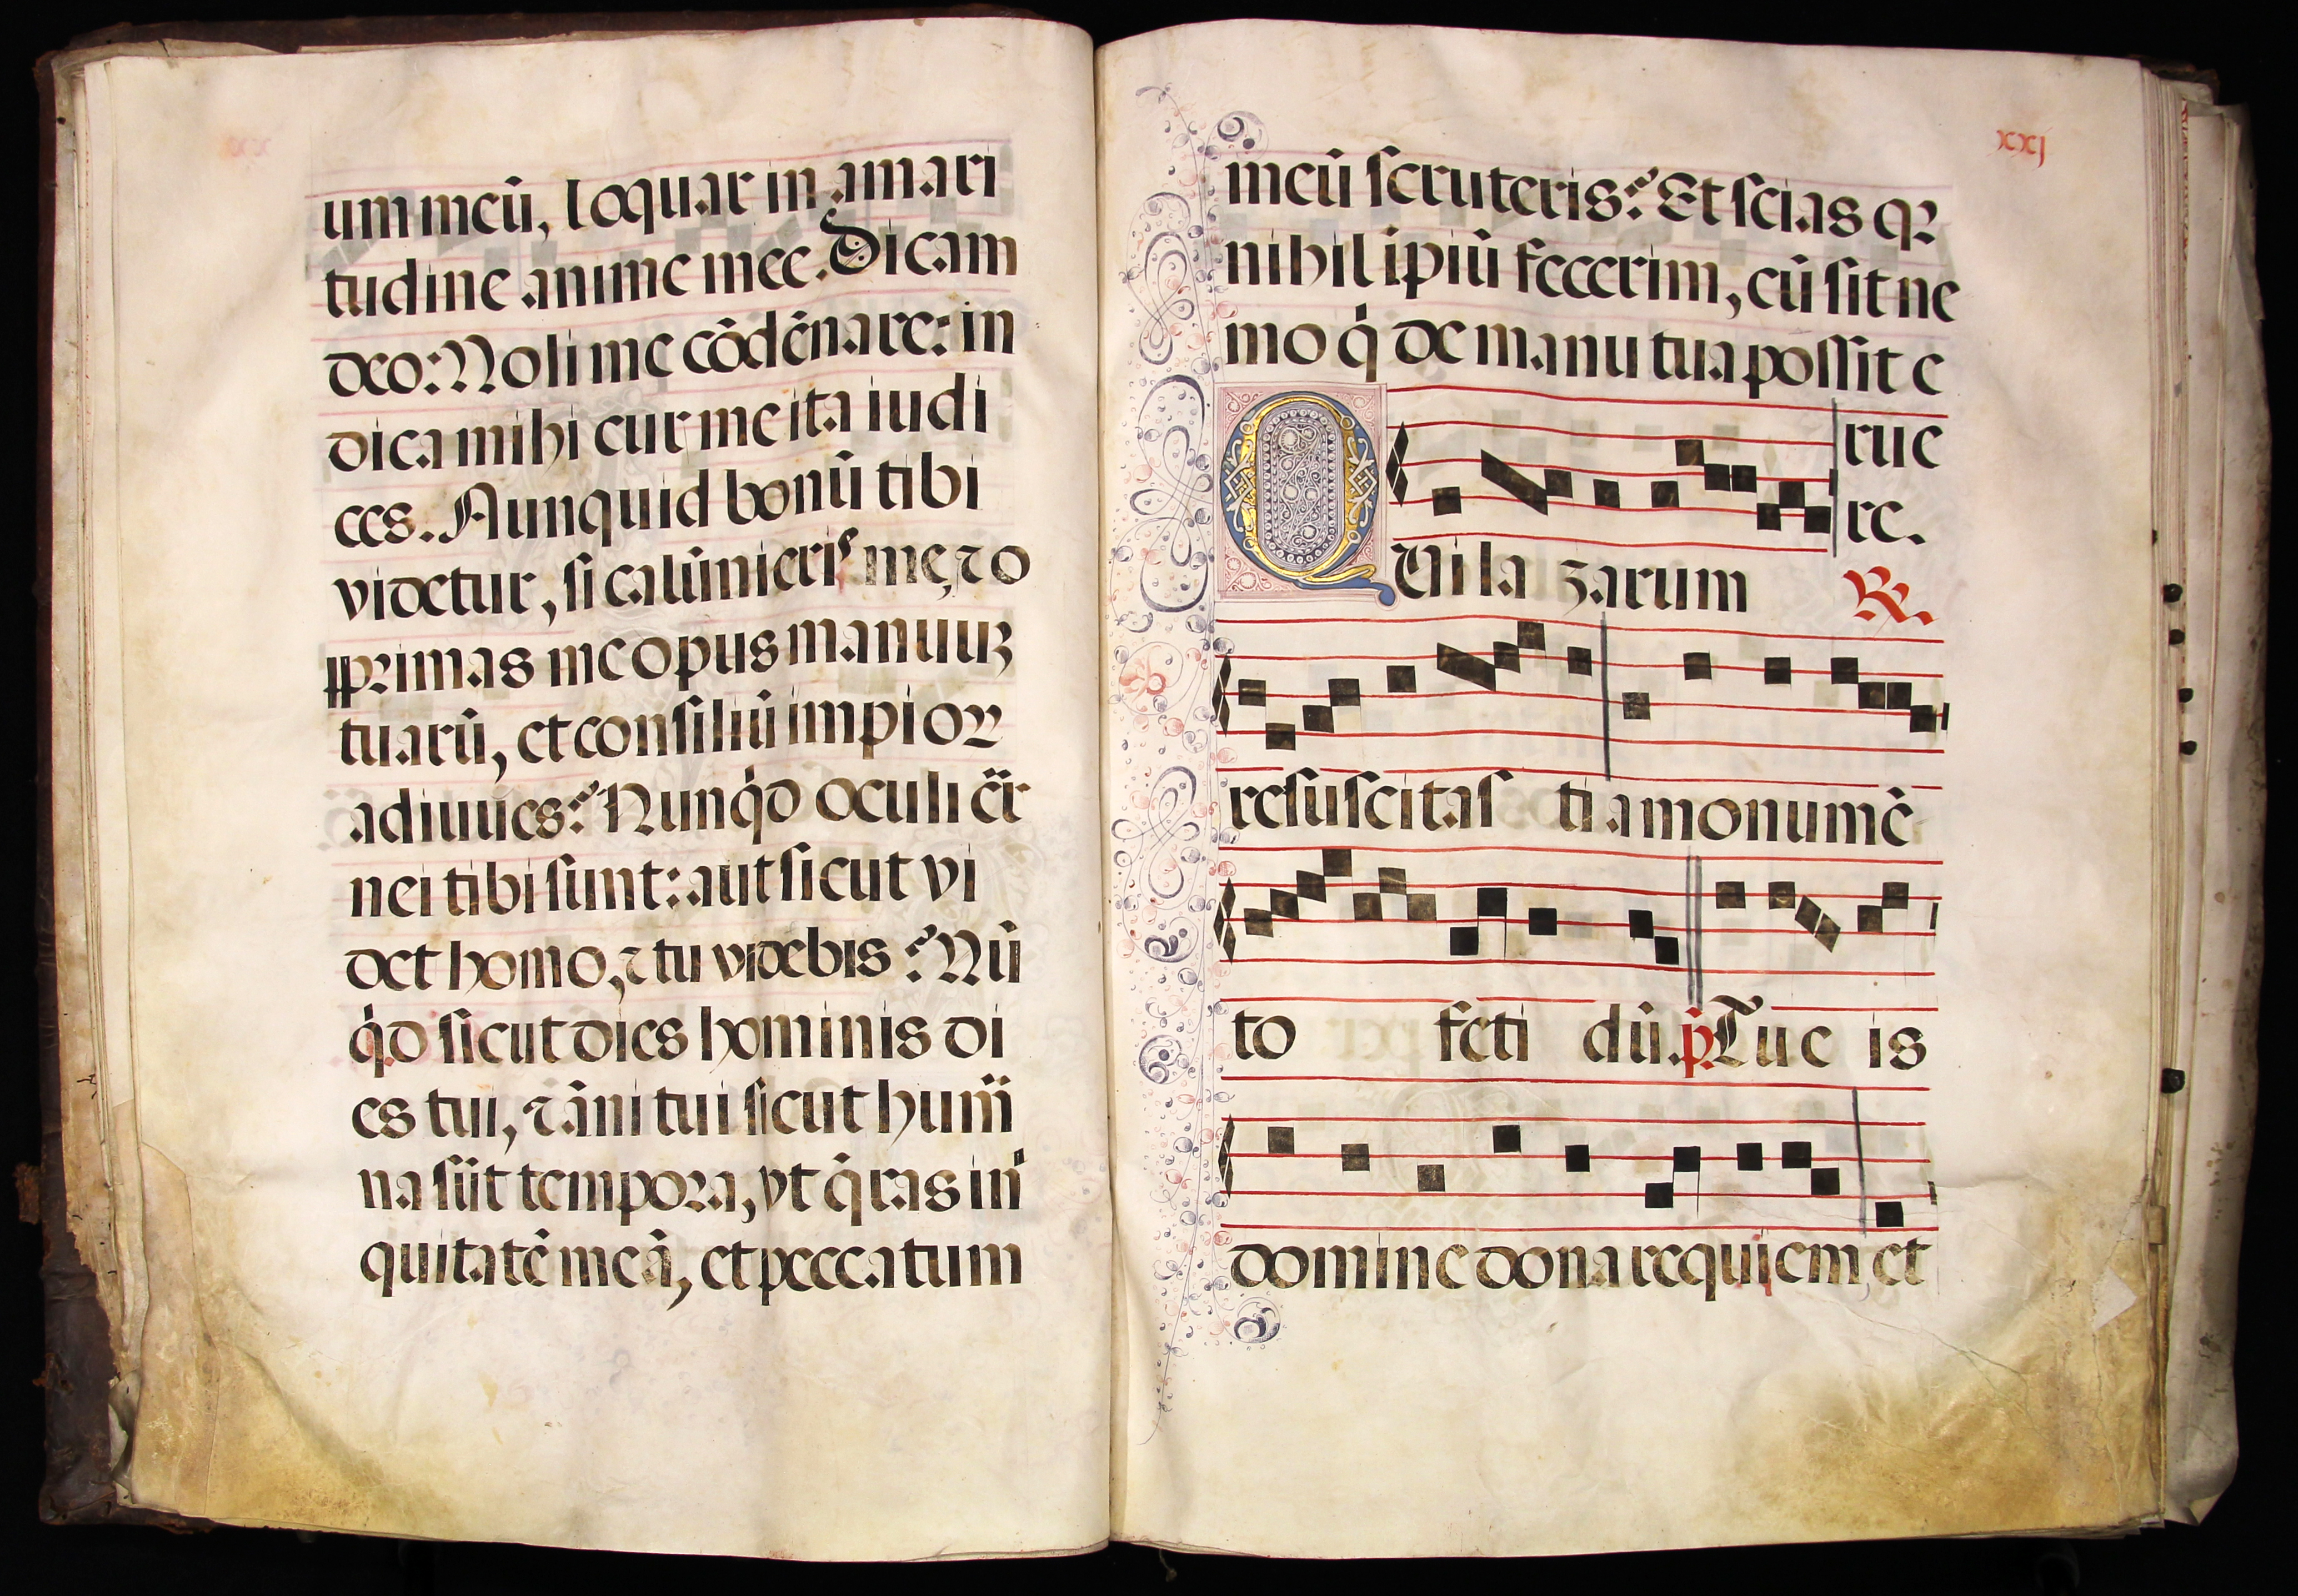 um meū, loquar in amari
tudine anime mee. Dicam
deo: Noli me cōdēnare: in
dica mihi cur me ita iudi
ces. Nunquid bonū tibi
videtur, si calūnieris me, ⁊ o
pprimas me opus manuuꝫ
tuarū, et consiliū impioꝝ
adiuues? Nunqd oculi cār
nei tibi sunt: aut sicut vi
det homo, ⁊ tu videbis? Nū
qd sicut dies hominis di
es tui, ⁊ āni tui sicut humā
na sūt tempora, vt qras ini
quitatē meā, et peccatum
xxj
meū scruteris? Et scias qꝛ
nihil īpiū fecerim, cū sit ne
mo q de manu tua possit e
rue
re.
QVi lazarum ℟.
resuscitasti a monumē
to fetidū. p̄. Tu eis
domine dona requiem et